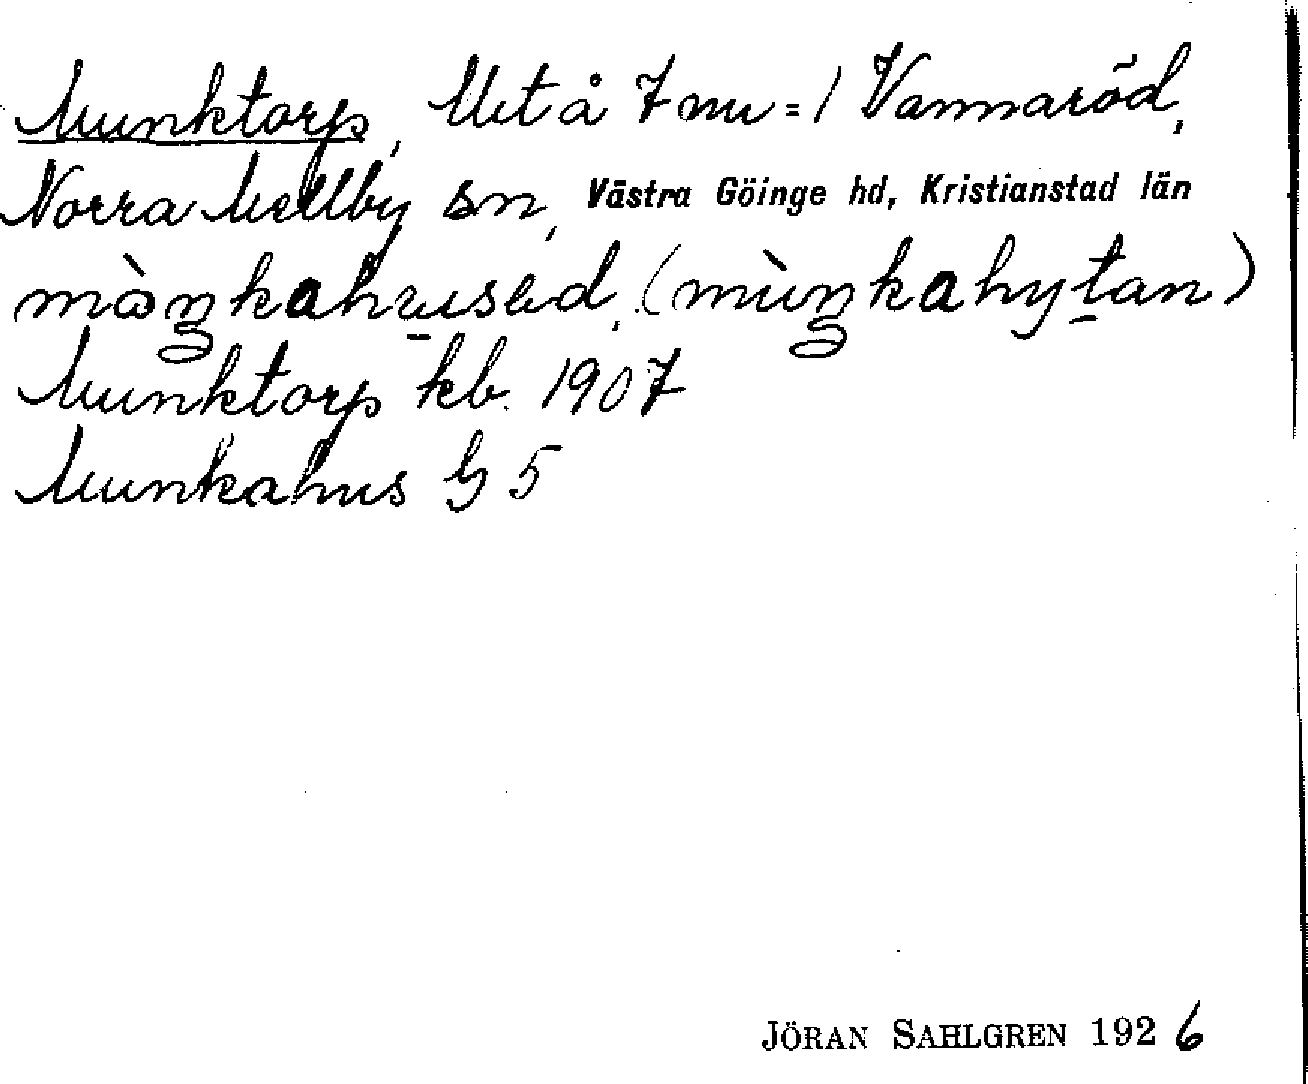 Munktorp, Utå 7 mu = 1 Vannaröd,
Norra Mellby sn, Västra Göinge hd, Kristianstad län
mòŋkahusəd, (mùŋkahytan)
Munktorp kb. 1907
Munkahus G 5
JÖRAN SAHLGREN 1926